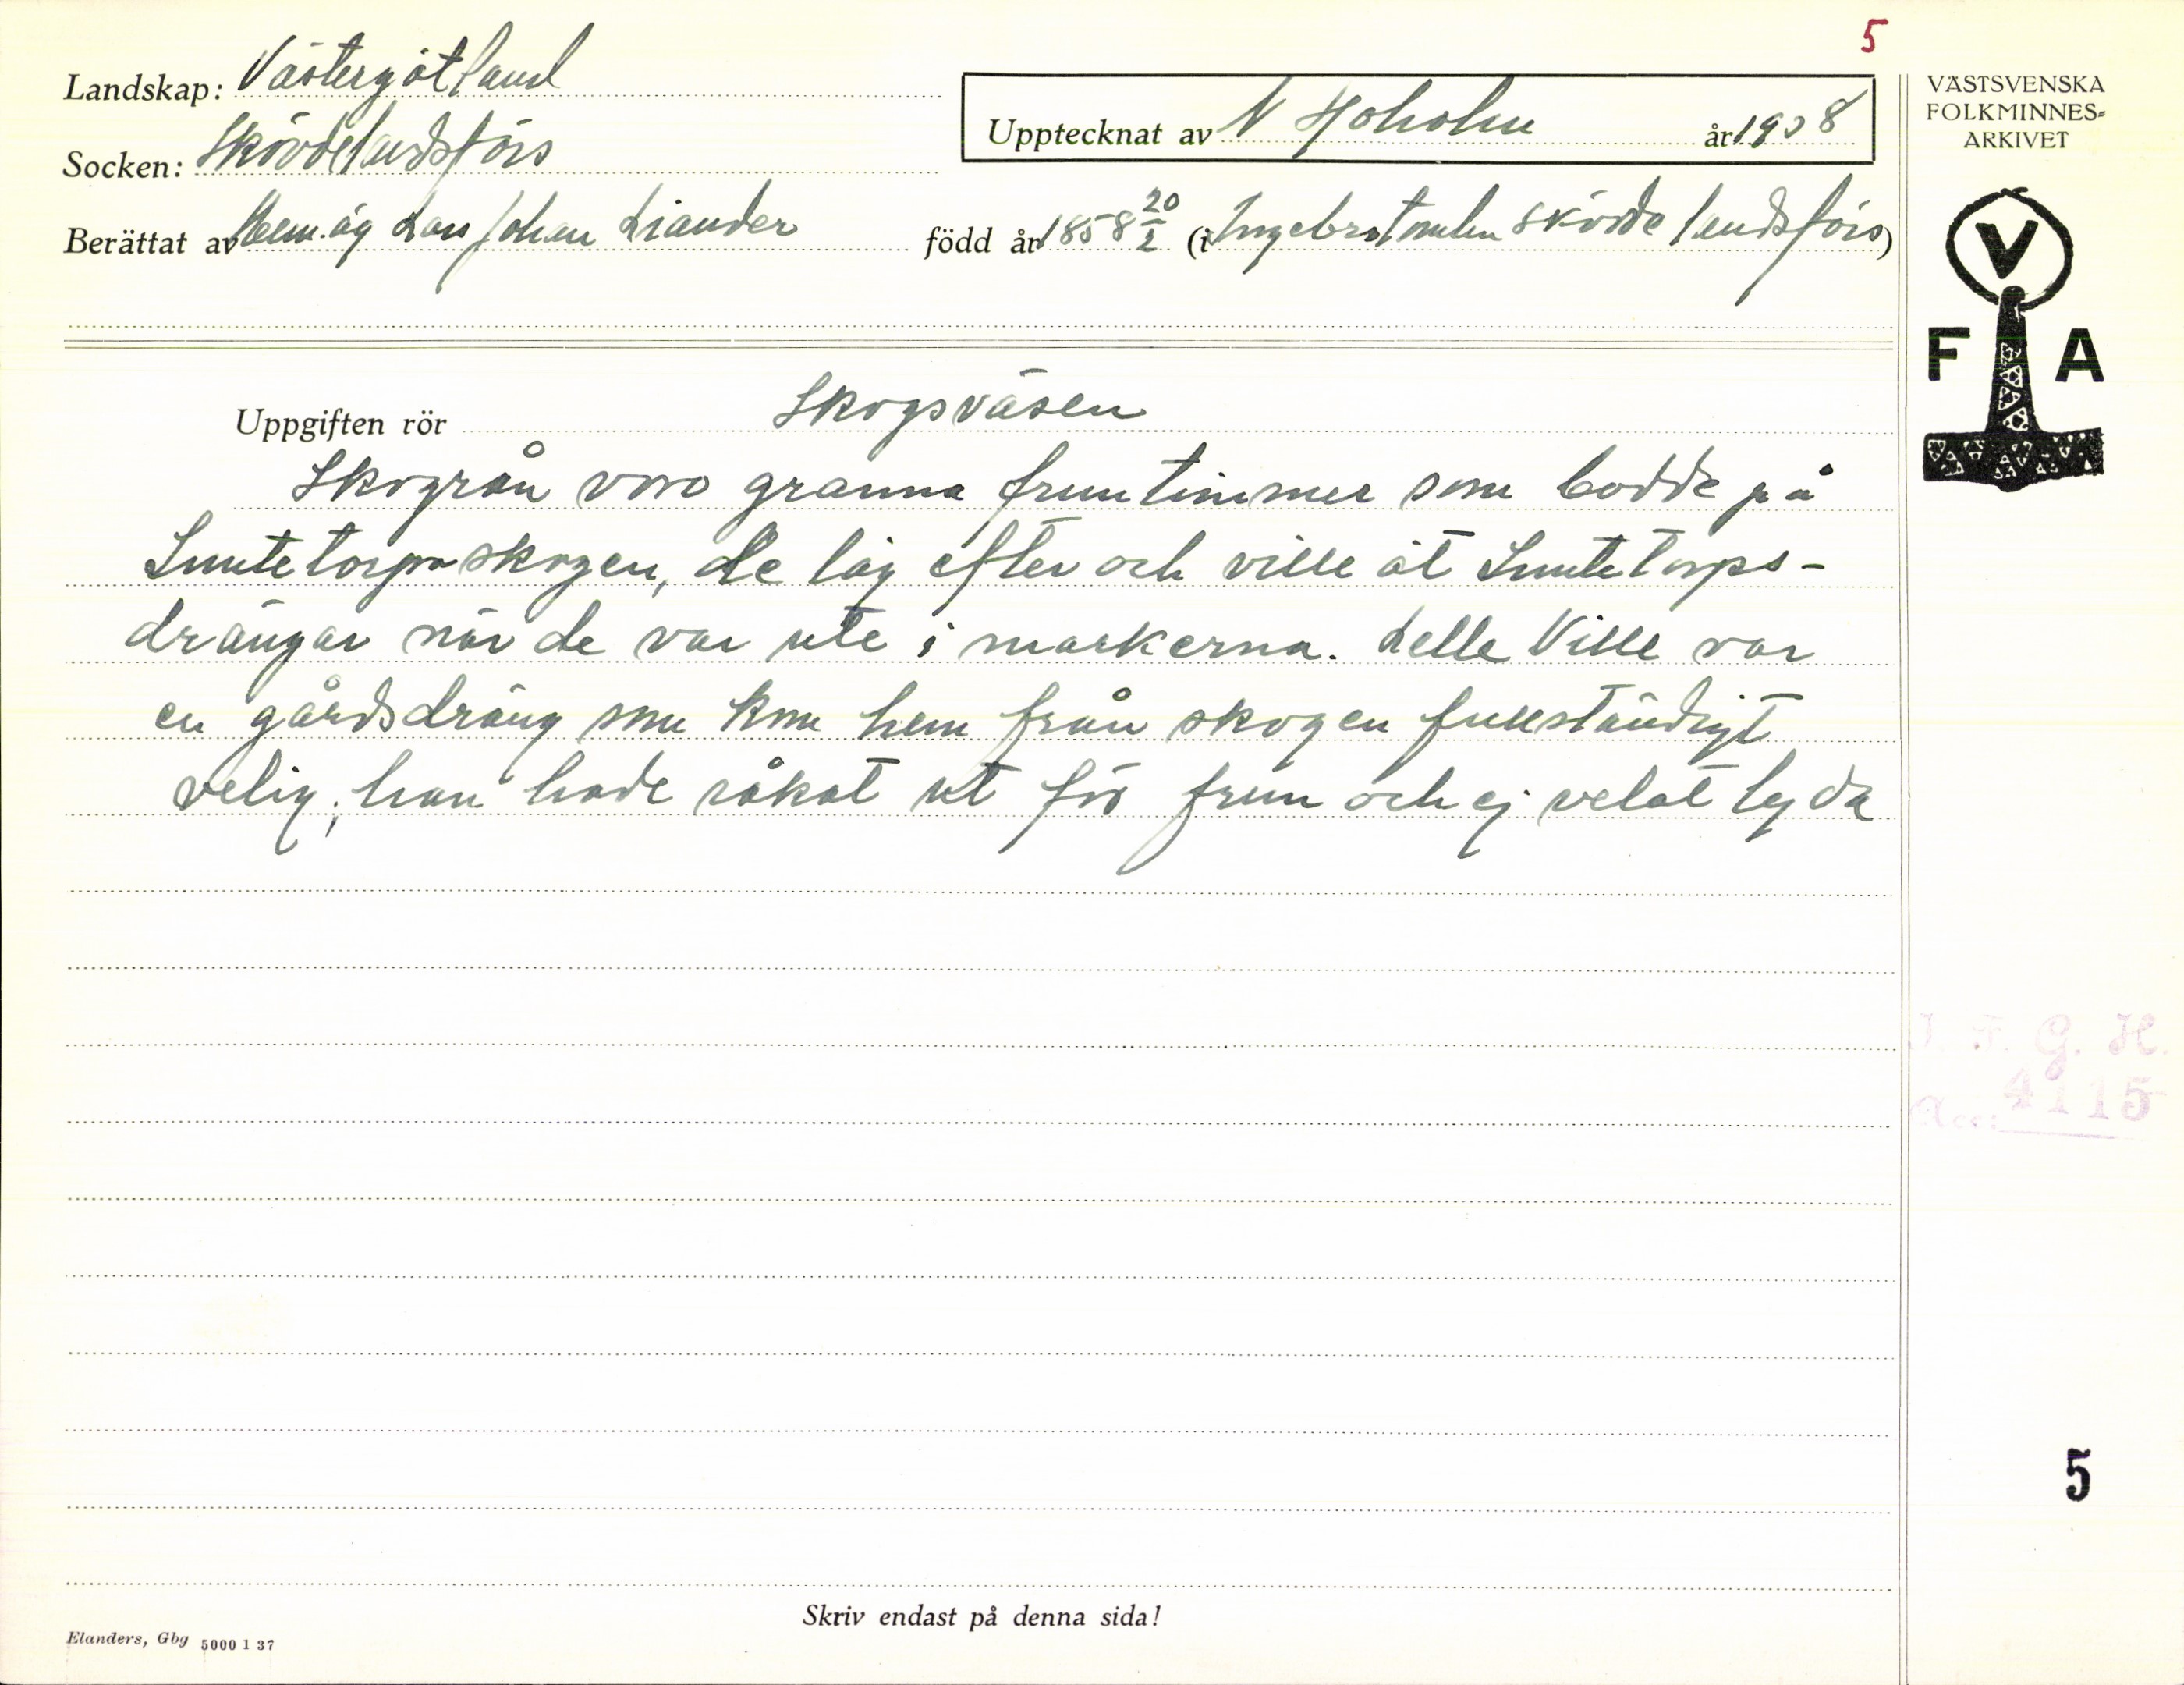 5
Landskap: Västergötland
Socken: Skövde landsförs
Upptecknat av N Hoholm år 1938
Berättat av Hem.äg Lars Johan Liander född år 1858 20/2 (i Skövde landsförs)
VÄSTSVENSKA
FOLKMINNES=
ARKIVET
V
F A
Uppgiften rör Skogsväsen
Skogrån voro granna fruntimmer som bodde på
Simtetorpsskogen, de låg efter och ville åt Simtetorps-
drängar när de var ute i markerna. Lelle Ville var
en gårdsdräng som kom hem från skogen fullständigt
velig; han hade råkat ut för frun och ej velat lyda
J F. G. H.
Acc: 4115
5
Skriv endast på denna sida!
Elanders, Gbg 5000 1 37